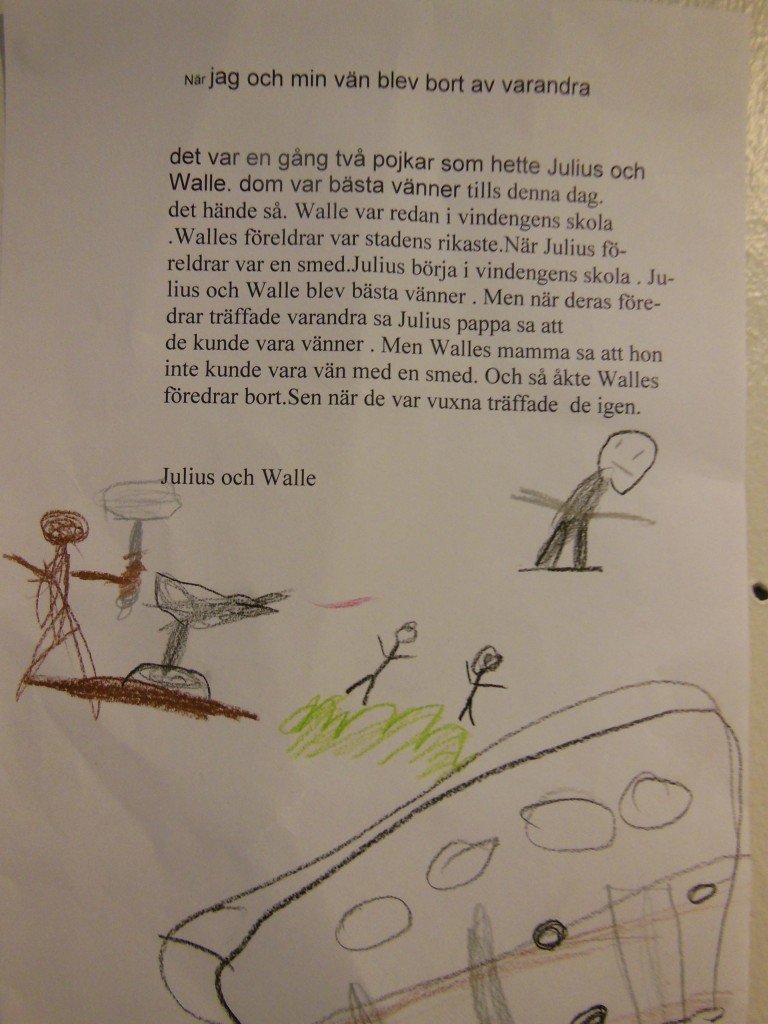 När jag och min vän blev bort av varandra
det var en gång två pojkar som hette Julius och
Walle. dom var bästa vänner tills denna dag.
det hände så. Walle var redan i vindengens skola
.Walles föreldrar var stadens rikaste.När Julius fö-
reldrar var en smed.Julius börja i vindengens skola . Ju-
lius och Walle blev bästa vänner . Men när deras före-
drar träffade varandra sa Julius pappa sa att
de kunde vara vänner . Men Walles mamma sa att hon
inte kunde vara vän med en smed. Och så åkte Walles
föredrar bort.Sen när de var vuxna träffade  de igen.
Julius och Walle